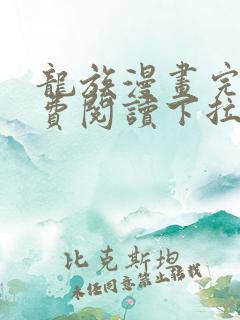 龍族漫畫完
費閱讀下拉
比克斯坦
未经同意禁止转载